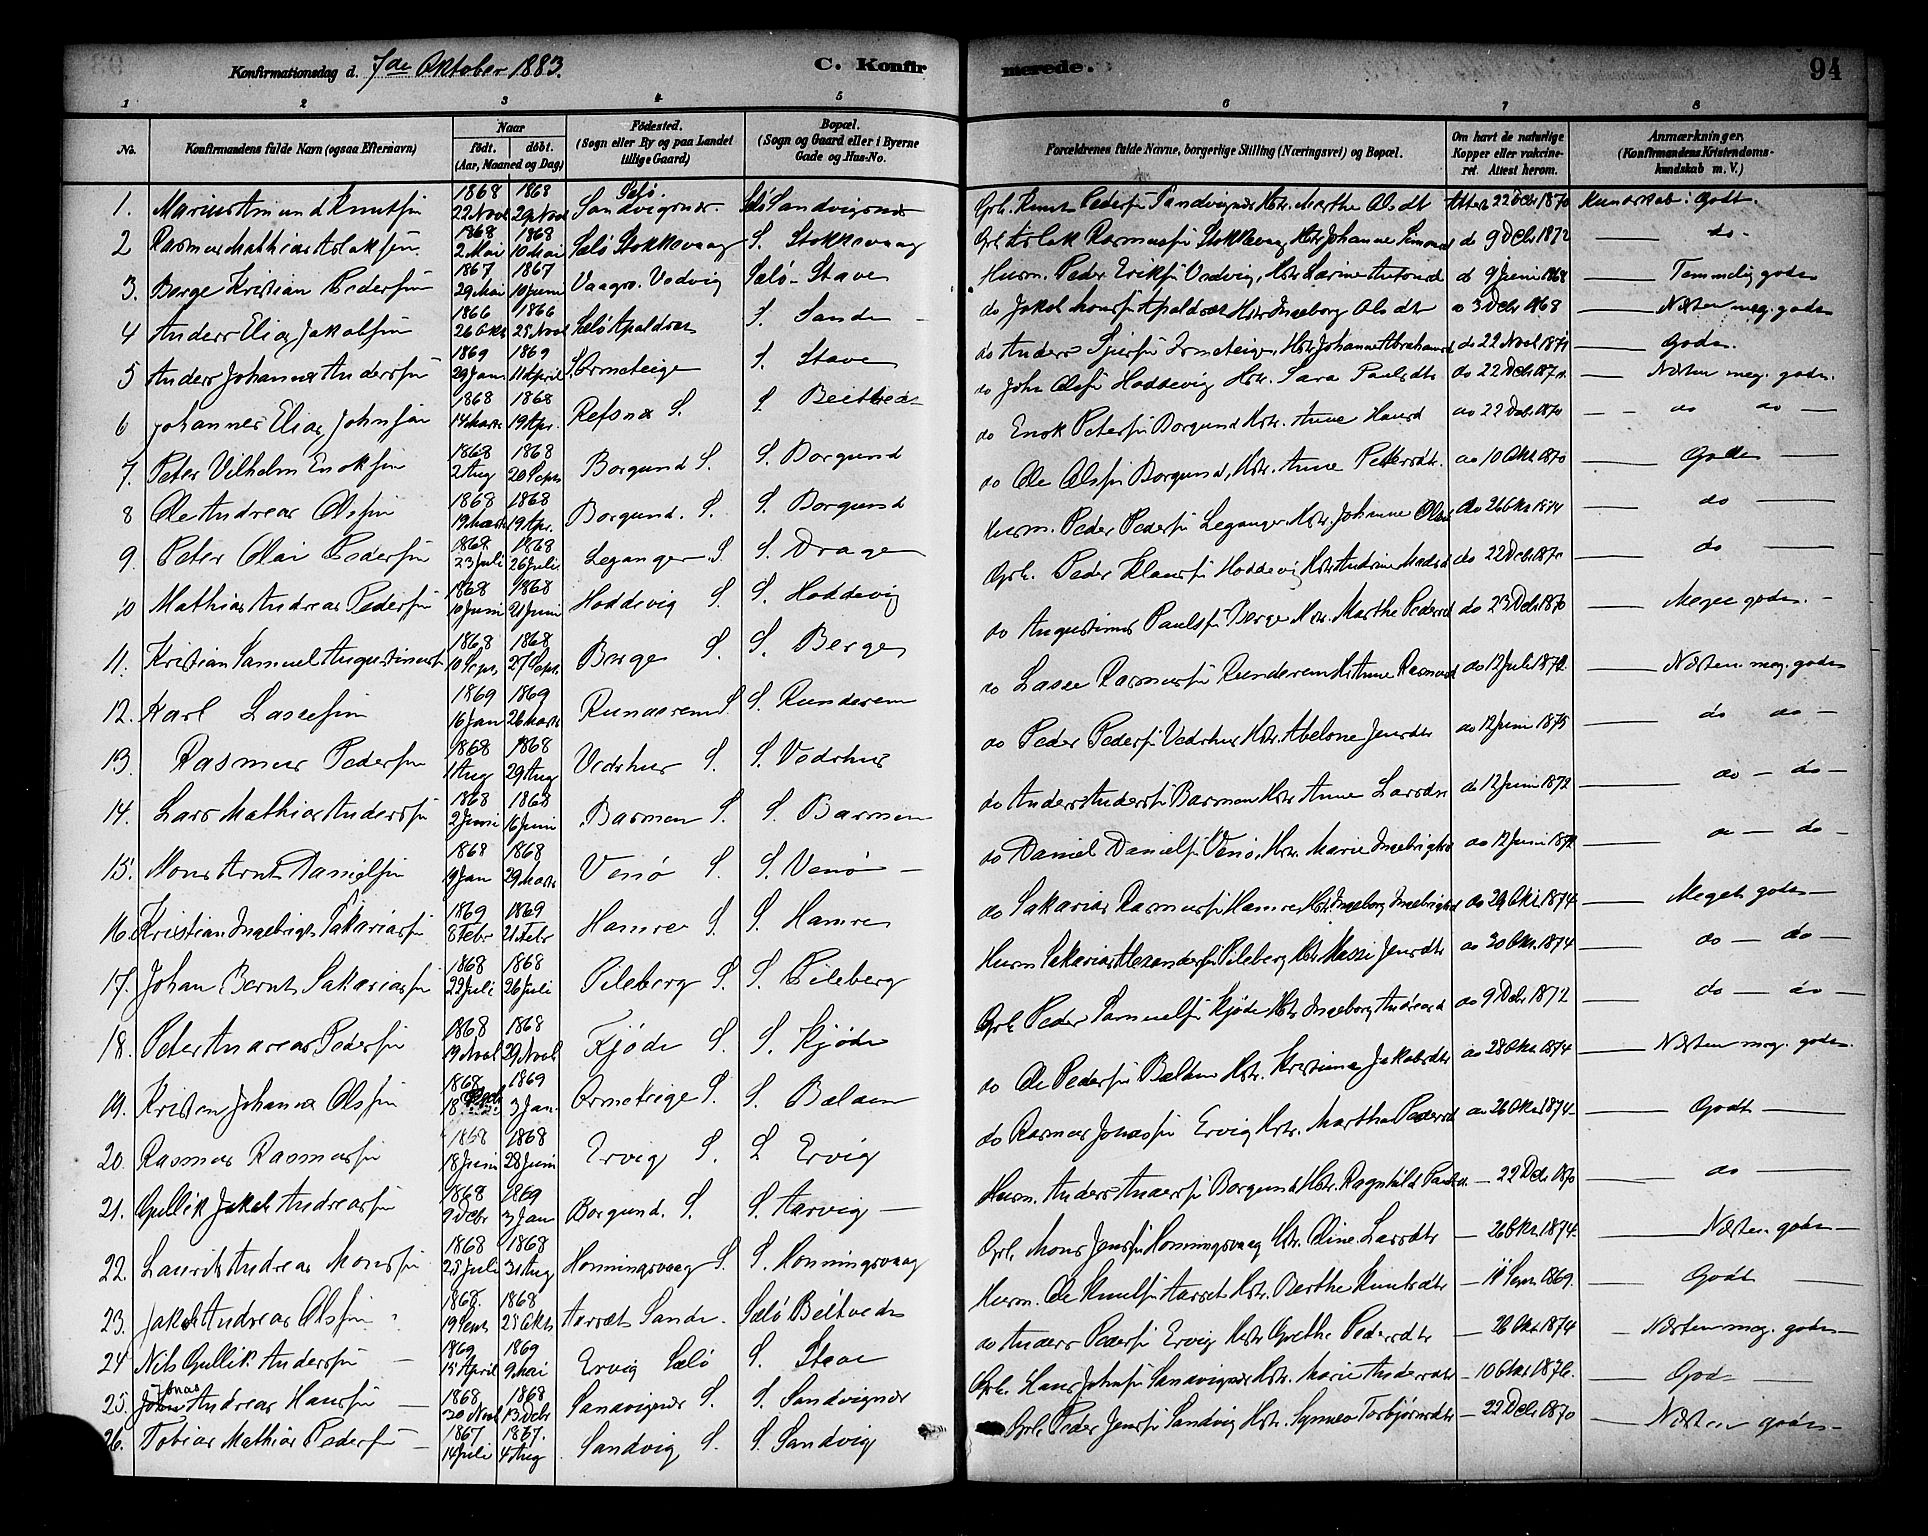 Konfirmationsdag d. 7de Oktober 1883.
C. Konfirmerede.
94
1 2 3 4 5 6 7 8
No. Konfirmandens fulde Navn (ogsaa Efternavn)
Naar Født. døbt. (Aar, Maaned og Dag)
Fødested. (Sogn eller By og paa Landet tillige Gaard)
Bopæl. (Sogn og Gaard eller i Byerne Gade og Hus-No.
Forældrenes fulde Navne, borgerlige Stilling (Næringsvei) og Bopæl.
Om havt de naturlige Kopper eller vakcineret. Attest herom.
Anmærkninger, (Konfirmandens Kristendomskundskab m. V.)
1. Marius Amund Knutsøn 1868 22 Novbr 1868 29 Novbr Selø. Sandvignæs. Sandvignæs Knut Pedersøn Sandvignæs Hstr. Marthe Olsdt Attest 22 Decbr 1870 Kundskab: Godt.
2 Rasmus Mathias Aslaksøn. 1868 2 Mai 1868 10 Mai Selø Stokkevaag S. Stokkevaag Aslak Rasmussøn Stokkevaag Hstr Johanne do 9 Decbr 1872 — do -
3. Børge Kristian Pedersøn 1867 29 Mai 1867 10 Juni Vaagsø. Vedvig Selø - Stave Husm. Peder Eriksøn Vedvig, Hstr. do 9 Juni 1868 — Temmelig godt
4 Anders Elias Jakobsøn 1866 26 Okt 1866 25 Novbr Selø Apaldsæt S. Sande do Jakob Apaldsæt Hstr Ingeborg Olsdtr 3 Decbr 1868 — Næsten meg. godt
5 Anders Johannes Andersøn 1869 29 Jan. 1869 11 April S. Ormeteige S. Stave do Anders Ormeteigen Hstr Johanne Abrahamsd do 22 Novbr — Godt.
6 Johannes Elias Johnsøn 1868 14 Marts 1868 19 Apr. Refsnæs S. S. do John Olsøn Hoddevig Hstr. Sara Paulsdtr do 22 Decbr — Næsten meg. godt.
7. Peter Vilhelm Enoksøn 1868 2 Aug 1868 20 Septr Borgund S. S. Borgund do Enok Petersøn Borgund Hstr. Anne do 22 Decbr 1870 — do do —
8 Ole Andreas Olsøn 1868 19 Marts 1868 19 Apr. Borgund. S. S. Borgund do Ole Olsøn Borgund, Hstr. Anne Petersdtr. do 10 Okt 1870 — Godt —
9. Peter Olai Pedersøn 1868 23 Juli 1868 26 Juli Leganger S. S. Drage Husm. Peder Pedersøn Leganger Hstr. Johanne do 26 Okt 1874 — do —
10 Mathias Andreas Pedersøn 1868 10 Juni 1868 21 Juni Hoddevig S. S. Hoddevig Peder Klausøn Hoddevig Hstr Andrine Madsd do 22 Decbr — do —
11. Kristian Samuel Augustinusøn 1868 10 Septr. 1868 27 Septr. Berge S. S. Berge do Augustinus Paulsøn Berge Hstr. Marthe Pedersd do 23 Decbr 1870 — Meget godt. -
12. Karl Lassesøn 1869 16 Jan 1869 26 Marts Runderem S. S. Runderem do Lasse Rasmusøn Runderem Hstr Anne Rasmusd do 12 Juli 1872. — Næsten meg. godt
13. Rasmus Pedersøn 1868 1 Aug 1868 29 Aug Vedshus S. S. Vedshus do Peder Pedersøn Vedshus Hstr. Abelone Jensdtr do 12 Juni 1875 — do do —
14. Lars Mathias Andersøn 1868 2 Juni 1868 16 Juni Barmen S. S. Barmen do Anders Andersøn Barmen Hstr Anne Larsdtr do 12 Juni 1872 — do — do —
15. Mons Arnt Danielsøn 1868 9 Jan 1868 29 Marts Venø S. S. Venø — do Daniel Danielsøn Venø, Hstr. Marie Ingebrigtsd do 12 Juni 1872 — do — do —
16. Kristian Ingebrigt Sakariasøn 1869 8 Febr 1869 21 Febr Hamre S. S. Hamre do Sakarias Rasmusøn Hamre Hstr. Ingeborg Ingebrigtsd do 29 Okt 1874 — Meget godt —
17. Johan Bernt Sakariasøn 1868 22 Juli 1868 26 Juli Pileberg S. S. Pileberg Husm Sakarias Alexandersøn Pileberg Hstr Massi Jensdtr do 30 Okt. 1874 — do — do —
18. Peter Andreas Pedersøn 1868 19 Novbr 1868 29 Novbr Kjøde S. S. Kjøde Peder Samuelsøn Kjøde Hstr Ingeborg Andreasd do 9 Decbr 1872 — do — do —
19. Kristen Johannes Olsøn 1868 18 1869 3 Jan. Ormeteige S. S. do Ole Pedersøn Hstr. Kristiane Jakobsdtr do 28 Okt. 1874 — Næsten meg. godt.
20. Rasmus Rasmusøn 1868 18 Juni 1868 28 Juni Ervig S. S. Ervig do Rasmus Jonassøn Ervig Hstr. Marthe Pedersd do 26 Okt 1874 — Godt —
21. Gullik Jakob Andreasøn 1868 9 Decbr 1869 3 Jan Borgund. S. S. Aarvig — Husm. Anders Andersøn Borgund Hstr. Ragnhild — 22 Decbr 1870 — do —
22. Laurits Andreas Monsøn 1868 25 Juli 1868 31 Aug Honningsvaag S. S. Honningsvaag Mons Jensøn Honningsvaag Hstr. Oline Larsdtr — 26 Okt. 1874. — Næsten godt —
23. Jakob Andreas Olsøn 1868. 19 Septr 1868 25 Oktr Aarsæt Sande. Selø Husm. Ole Knutsøn Aarset Hstr. Berthe Knutsdtr — 18 Septr 1869. — Godt —
24 Nils Gullik Andersøn — 1869 15 April 1869 9 Mai Ervig Selø S. Stave do Anders Pedersøn Ervig Hstr Grethe Pedersdtr — 26 Okt. 1874 — Næsten meg. godt —
25. Jonas Andreas Hansøn — 1868 30 Novbr 1868 13 Decbr Sandvignæs S. S. Sandvignæs Hans Johnsøn Sandvignæs Hstr. Marie Andersdtr — 10 Okt 1876. — Godt —
26. Tobias Mathias Pedersøn — 1867 14 Juli 1867. 4 Aug Sandvig S. S. Sandvig Peder Jensøn Sandvig Hstr. Synneve Torbjørnsdtr — 22 Decbr 1870 — Næsten godt —